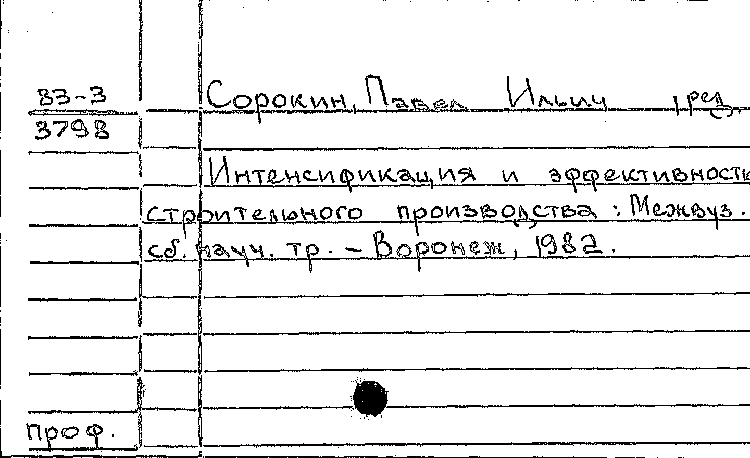 83-3 Сорокин, Павел Ильич , ред.
3798
Интенсификация и эффективность
строительного производства : Межвуз.
сб. науч. тр. – Воронеж, 1982.
проф.